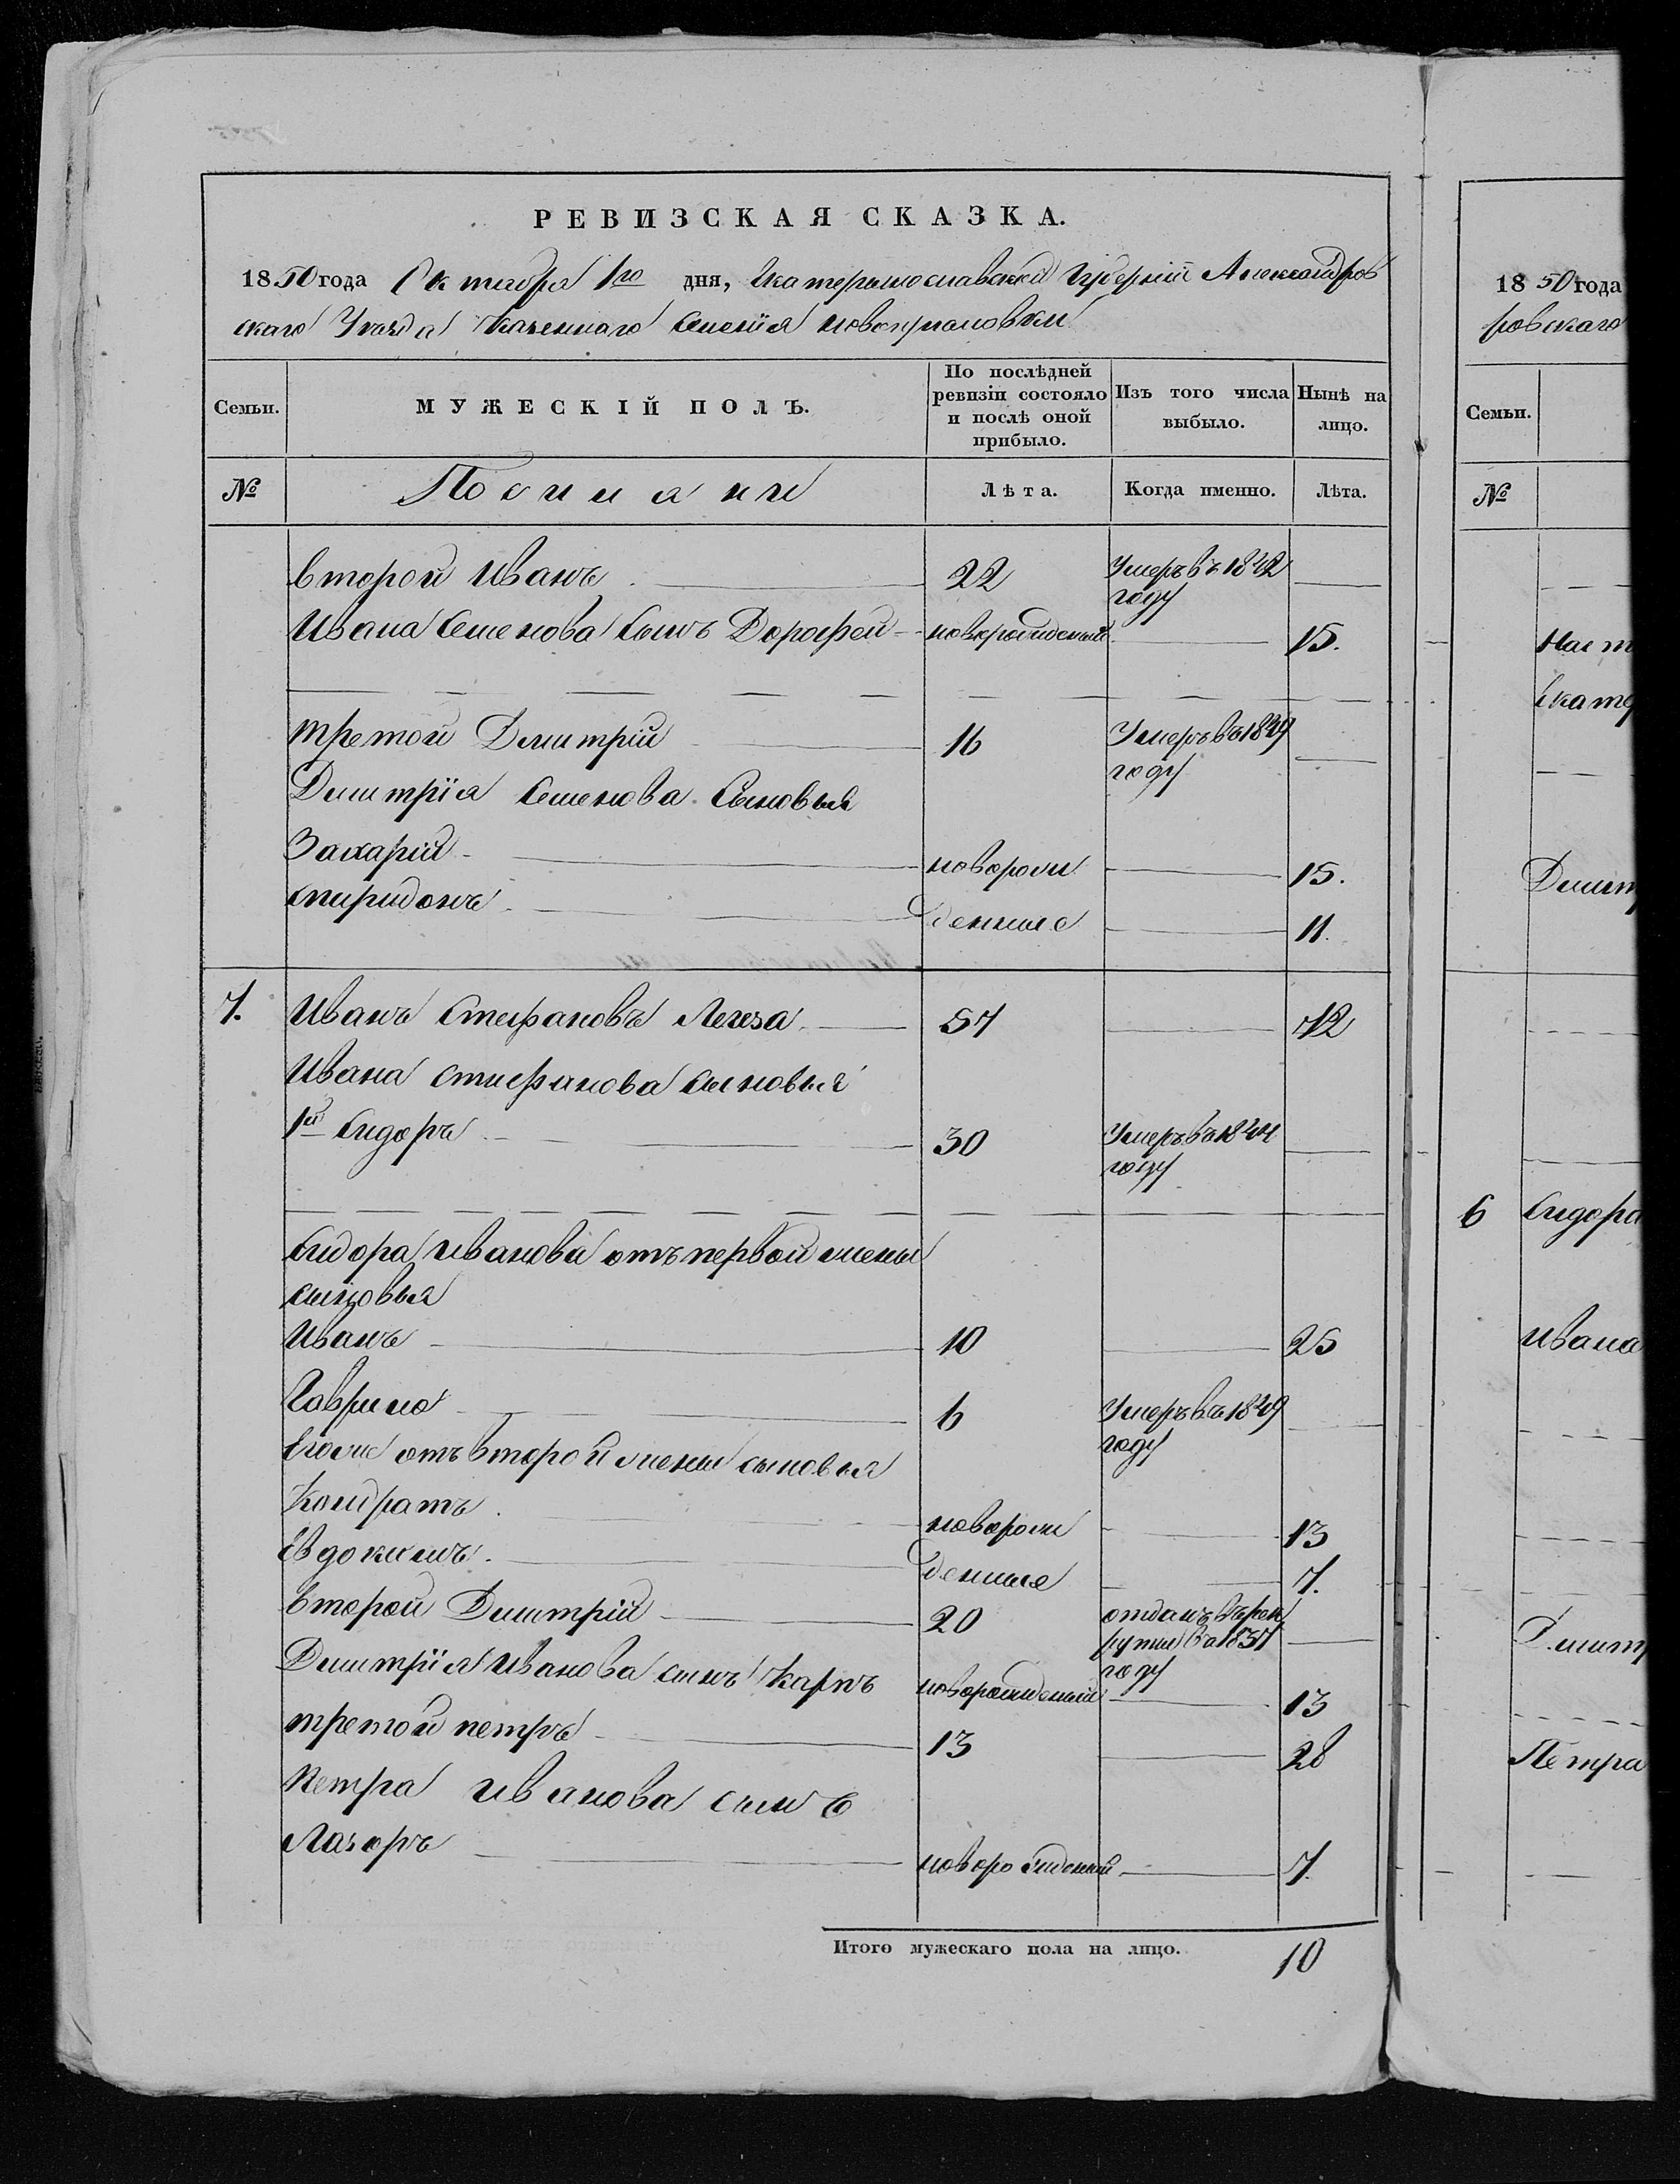 РЕВИЗСКАЯ СКАЗКА.
1850 года Октября 1го дня, Екатеринославской Губернiи Александров
скаго Уезда Казеннаго Селенiя
Семьи.
МУЖЕСКIЙ ПОЛЪ.
По послѣдней ревизiи состояло и послѣ оной прибыло.
Изъ того числа выбыло.
Нынѣ на лицо.
№
Поселяни
Лѣта.
Когда именно.
Лѣта.
второй Иванъ 22 Умеръ въ 1842 году
Ивана Семенова сынъ Дорофей новорожденый 15.
третой Дмитрiй 16 Умеръ въ 1849 году
Дмитрiя Семенова Сыновья
Захарiй новорож 15.
спиридонъ денные 11.
7. Иванъ Стефановъ Легеза 57 72
Ивана стефанова сыновья
1й Сидоръ 30 Умеръ въ 1844 году
Сидора Иванова отъ первой жены
сыновья
Иванъ 10 25
Гаврило 6 Умеръ въ 1849 году
Егоже отъ второй жены сыновья
Кондратъ новорож 13
Евдокимъ денные 7.
второй Дмитрiй 20 отданъ въ рек
руты въ 1837
году
Дмитрiя Иванова сынъ Карпъ новорожденый 13
третой петръ 13 28
Петра Иванова сынъ
Лазоръ новорожденый 7
Итого мужескаго пола на лицо. 10
1850 года
ровскаго
Семьи.
№
Наст
Екате
Дмит
6 Сидора
Ивана
Дмит
Петра